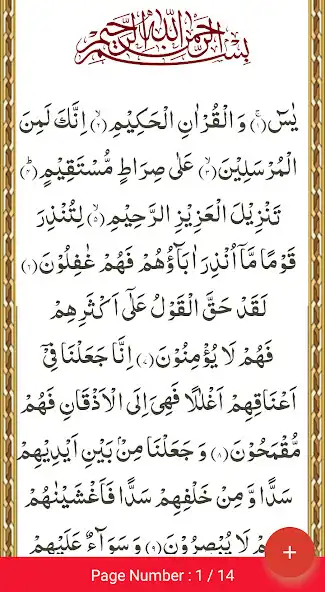 بِسْمِ اللهِ الرَّحْمٰنِ الرَّحِيْمِ
يٰسٓ ﴿١﴾ۚ وَ الْقُرْاٰنِ الْحَكِيْمِ ﴿٢﴾ۙ اِنَّكَ لَمِنَ
الْمُرْسَلِيْنَ ﴿٣﴾ۙ عَلٰى صِرَاطٍ مُّسْتَقِيْمٍ ﴿٤﴾ؕ
تَنْزِيْلَ الْعَزِيْزِ الرَّحِيْمِ ﴿٥﴾ۙ لِتُنْذِرَ
قَوْمًا مَّاۤ اُنْذِرَ اٰبَآؤُهُمْ فَهُمْ غٰفِلُوْنَ ﴿٦﴾
لَقَدْ حَقَّ الْقَوْلُ عَلٰۤى اَكْثَرِهِمْ
فَهُمْ لَا يُؤْمِنُوْنَ ﴿٧﴾ اِنَّا جَعَلْنَا فِىْۤ
اَعْنَاقِهِمْ اَغْلٰلًا فَهِىَ اِلَى الْاَذْقَانِ فَهُمْ
مُّقْمَحُوْنَ ﴿٨﴾ وَ جَعَلْنَا مِنْۢ بَيْنِ اَيْدِيْهِمْ
سَدًّا وَّ مِنْ خَلْفِهِمْ سَدًّا فَاَغْشَيْنٰهُمْ
لَا يُبْصِرُوْنَ ﴿٩﴾ وَ سَوَآءٌ عَلَيْهِمْ
+
Page Number : 1 / 14